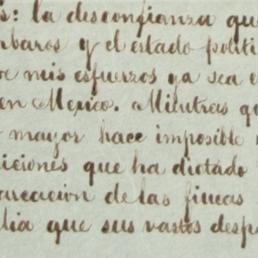 s: la desconfianza que
rbaros y el estado politi
re mis esfuerzos ya sea e
en Mexico. Mientras q
mayor hace imposible
iciones que ha dictado
arcacion de las fincas
lia que sus vastos desp